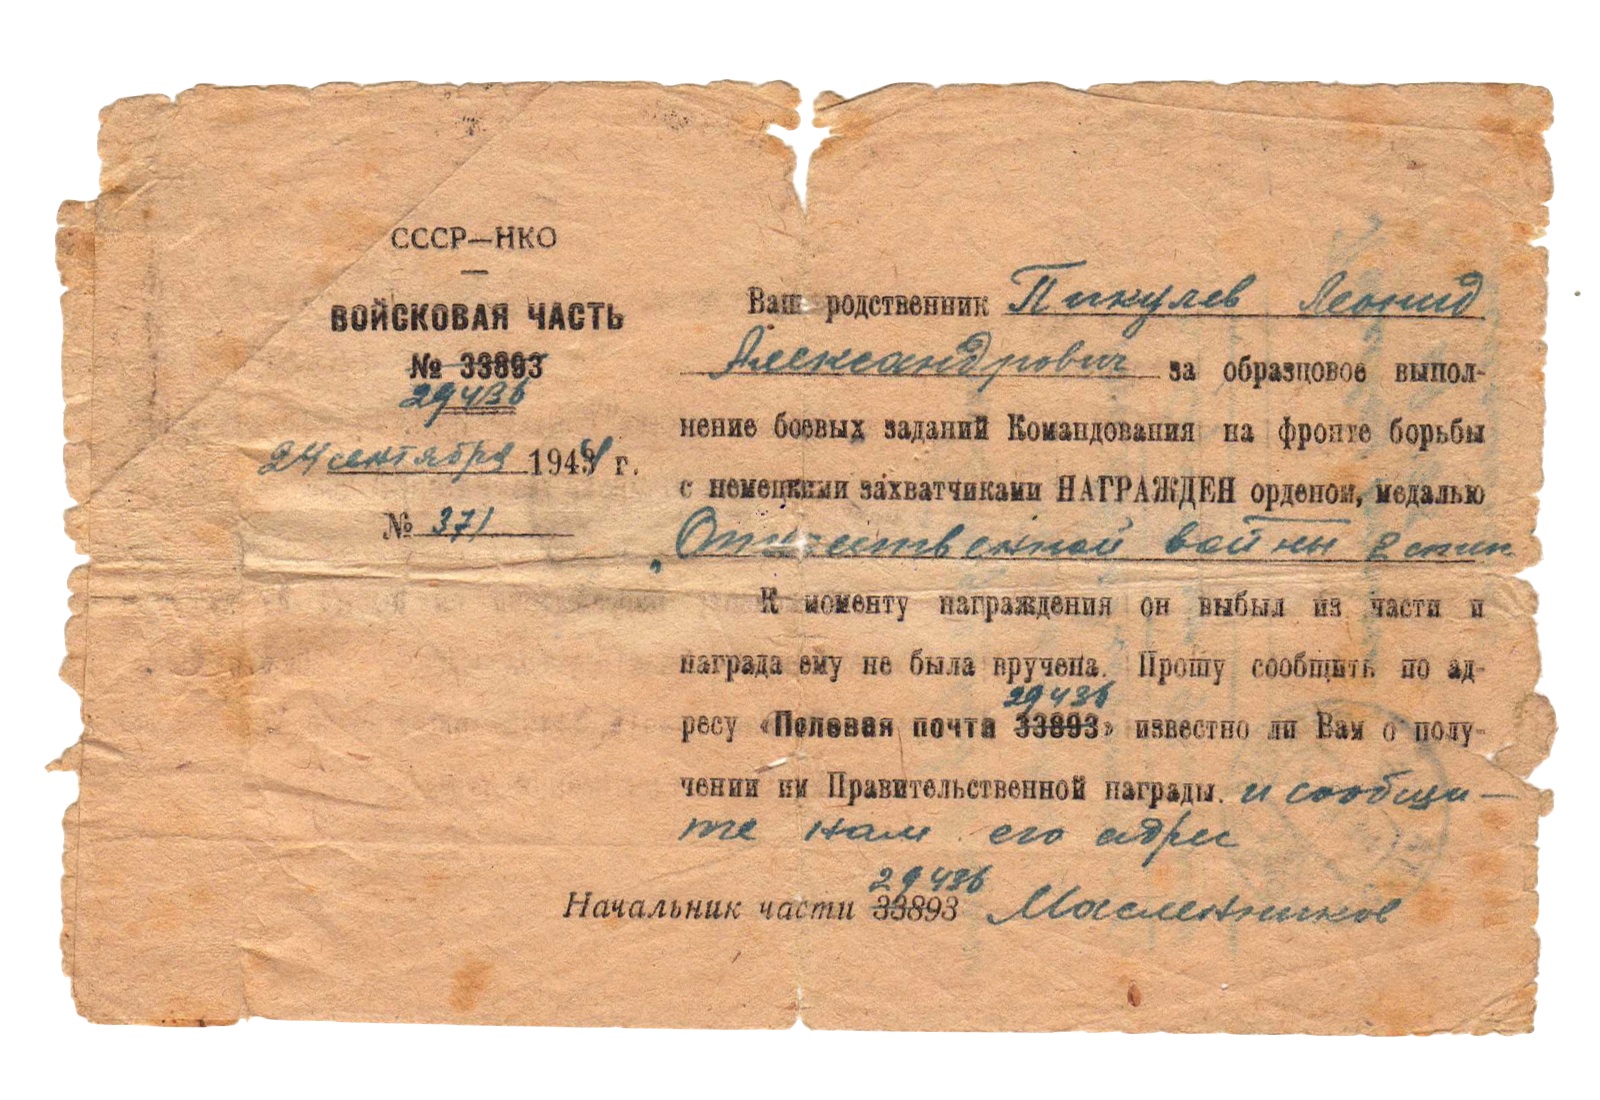 СССР—НКО
ВОЙСКОВАЯ ЧАСТЬ
№ 33893
29436
24 сентября 1944 г.
№ 371
Ваш родственник Пикулев Леонид
Александрович за образцовое выпол-
нение боевых заданий Командования на фронте борьбы
с немецкими захватчиками НАГРАЖДЕН орденом, медалью
„Отечественной войны 2 степ
К моменту награждения он выбыл из части и
награда ему не была вручена. Прошу сообщить по ад-
29436
ресу «Полевая почта 33893» известно ли Вам о полу-
чении им Правительственной награды. и сообщи-
те нам его адрес
29436
Начальник части 33893 Масленников